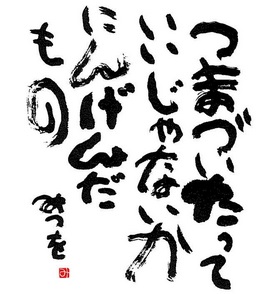 つまづいたって
いいじゃないか
にんげんだ
もの
みつを
み